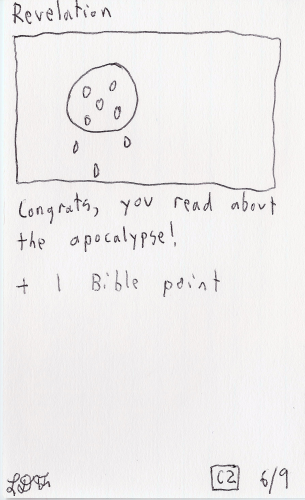 Revelation
Congrats, you read about
the apocalypse!
+ 1 Bible point
C2 6/9